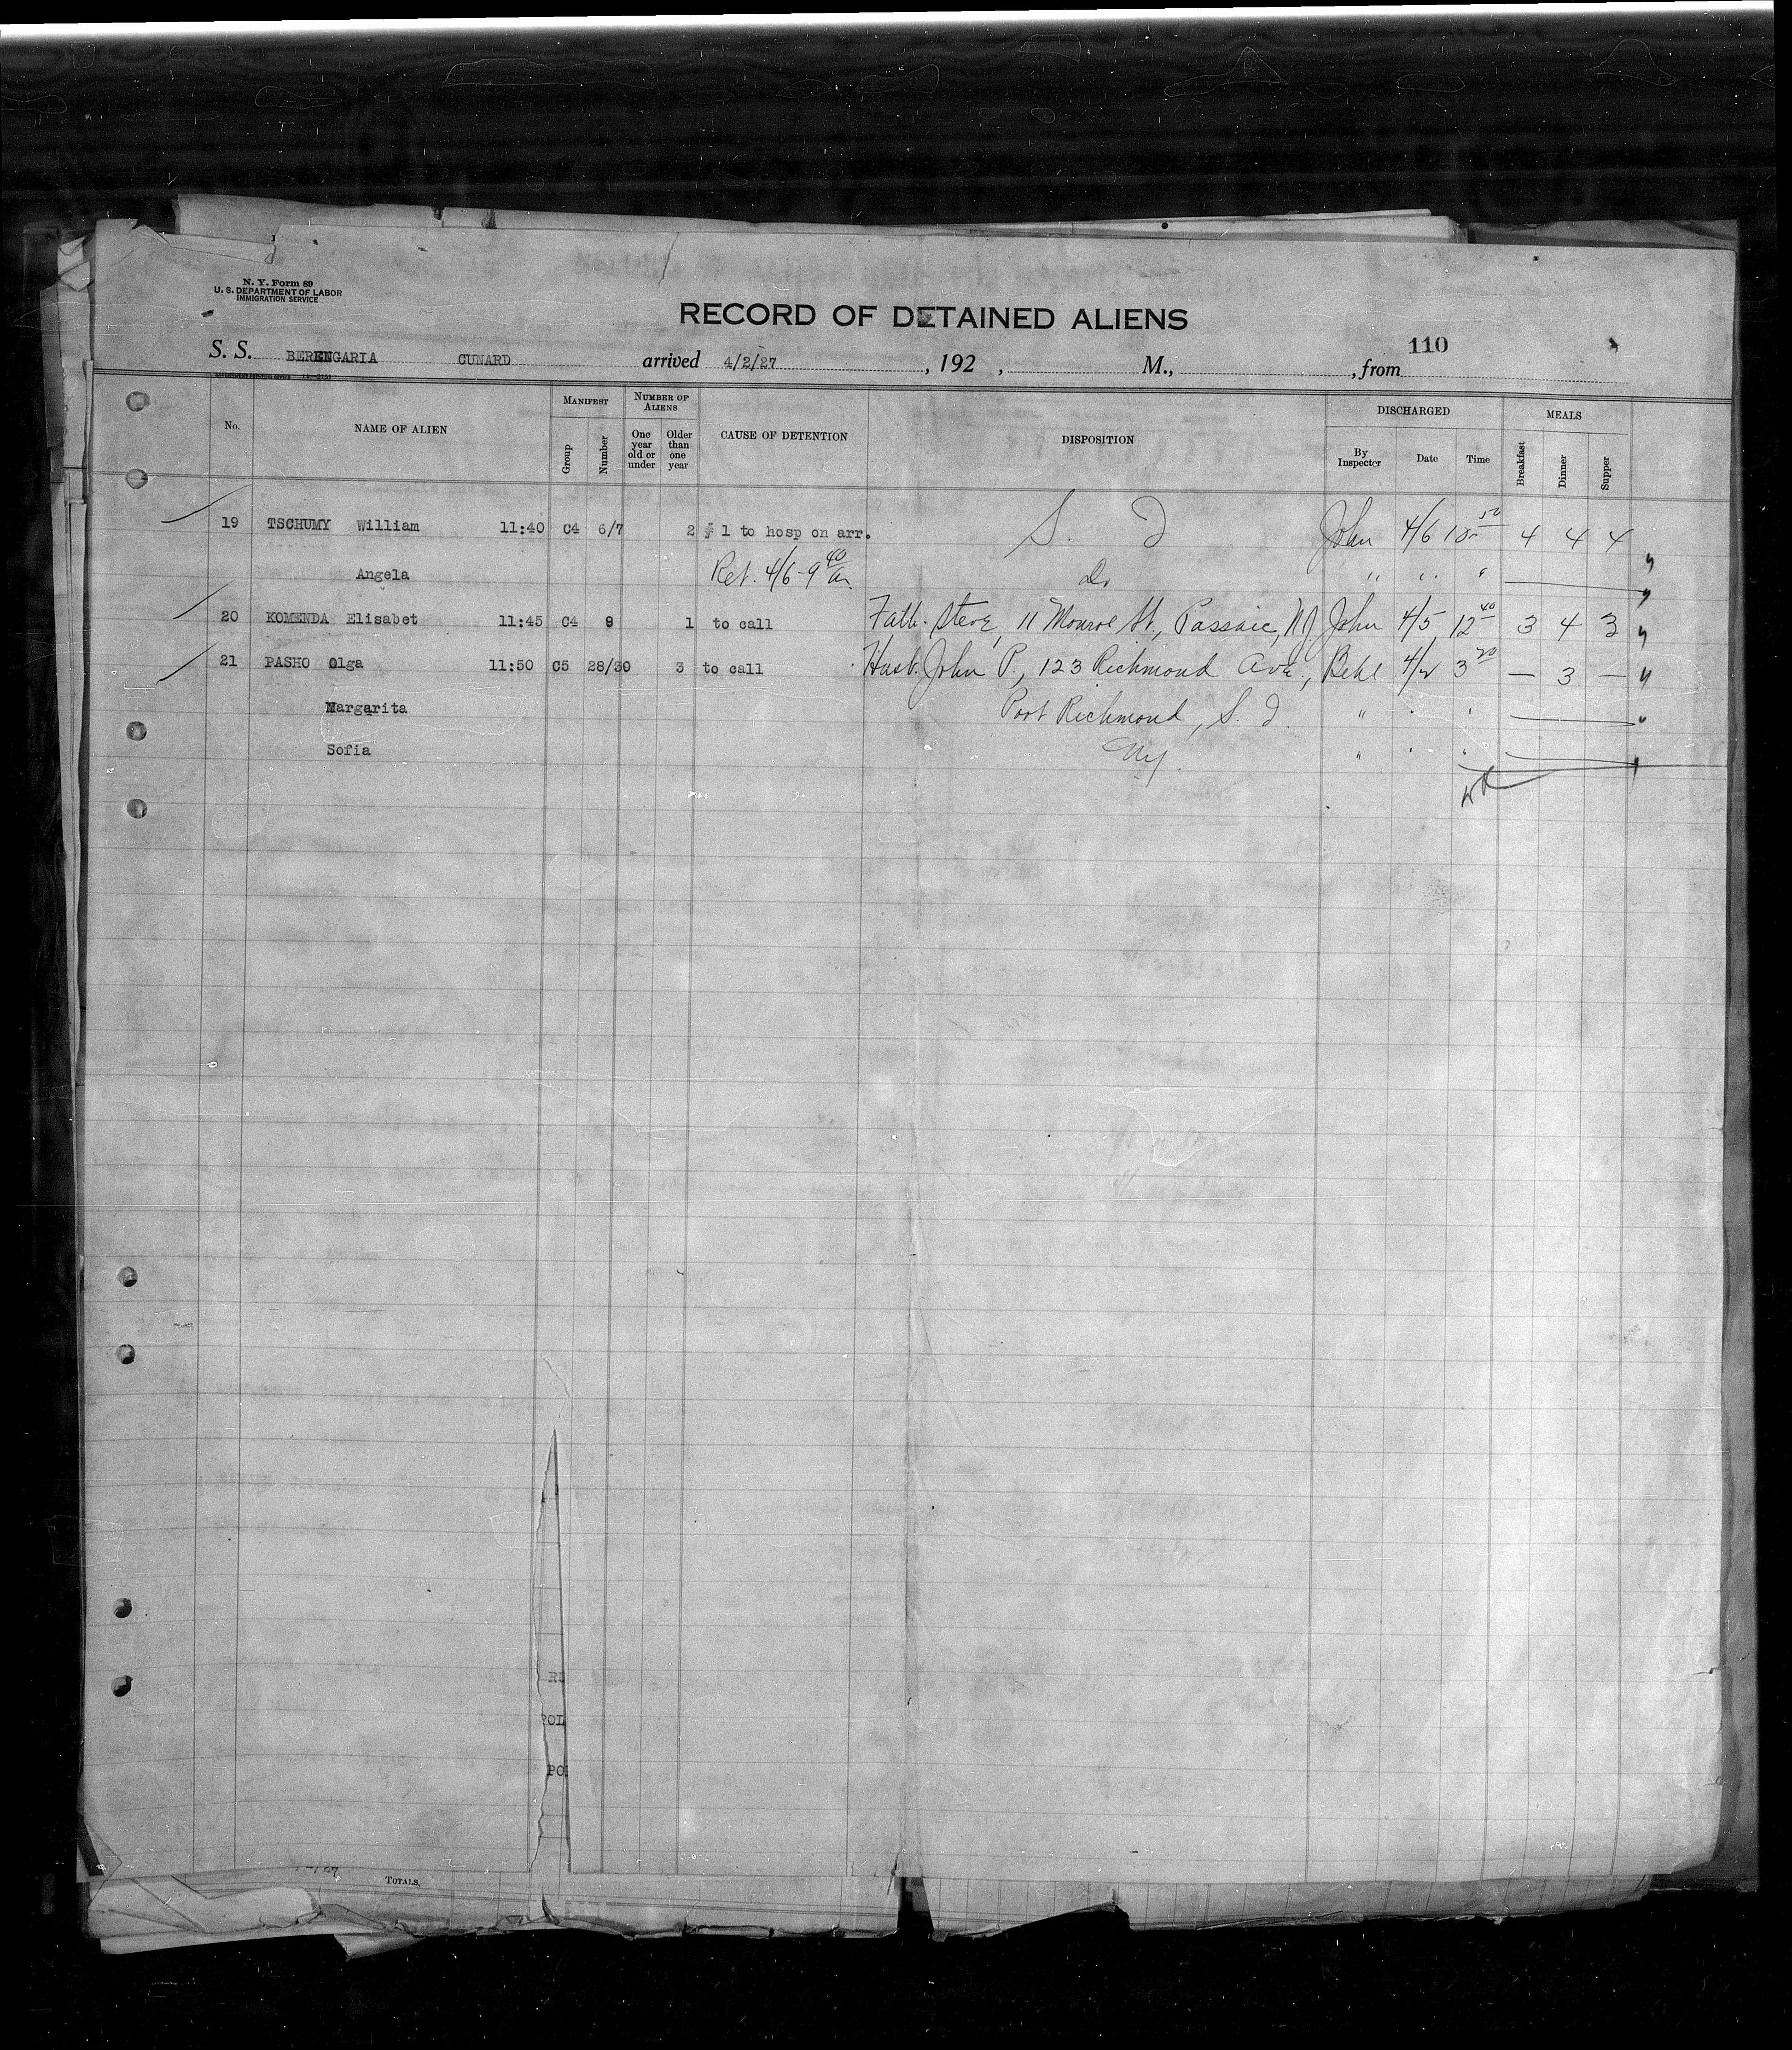 N. Y. Form 89
U. S. DEPARTMENT OF LABOR
IMMIGRATION SERVICE
RECORD OF DETAINED ALIENS
110
S. S. BERENGARIA CUNARD arrived 4/2/27, 192 , M., , from
No. NAME OF ALIEN MANIFEST Group Number NUMBER OF ALIENS One year old or under Older than one year CAUSE OF DETENTION DISPOSITION DISCHARGED By Inspector Date Time MEALS Breakfast Dinner Supper
19 TSCHUMY William 11:40 C4 6/7 2 # 1 to hosp on arr. S. I John 4/6 10 50 4 4 4
Angela Ret. 4/6 - 9 40 am Do " " "
20 KOMENDA Elisabet 11:45 C4 9 1 to call Fath. Steve, 11 Monroe St., Passaic, NJ John 4/5 12 40 3 4 3
21 PASHO Olga 11:50 C5 28/30 3 to call Husb. John P, 123 Richmond Ave., 4/2 3 20 — 3 —
Margarita Port Richmond, S. I. "
Sofia NY. "
RU
POL
PO
/27
TOTALS.